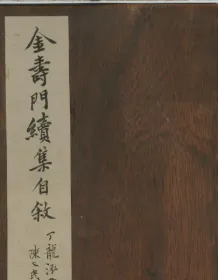 金壽門續集自敘
丁龍泓
陳